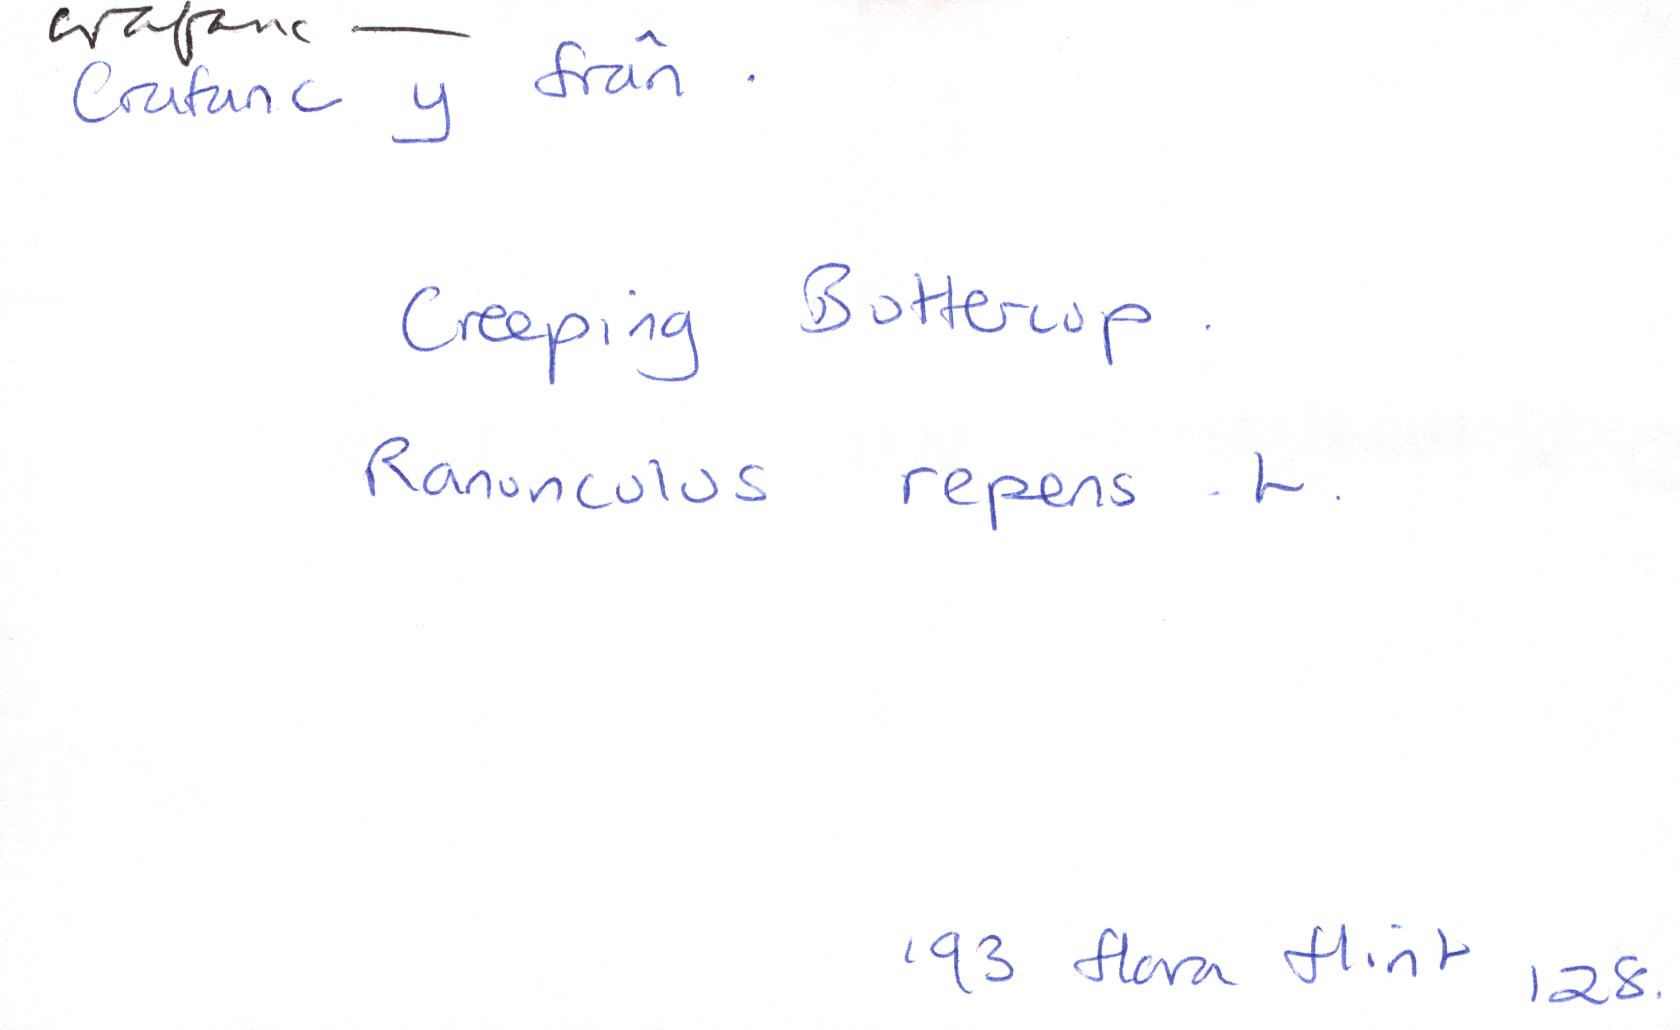 crafanc —
Crafanc y frân.
Creeping Buttercup.
Ranunculus repens. L.
'93 flora flint 128.